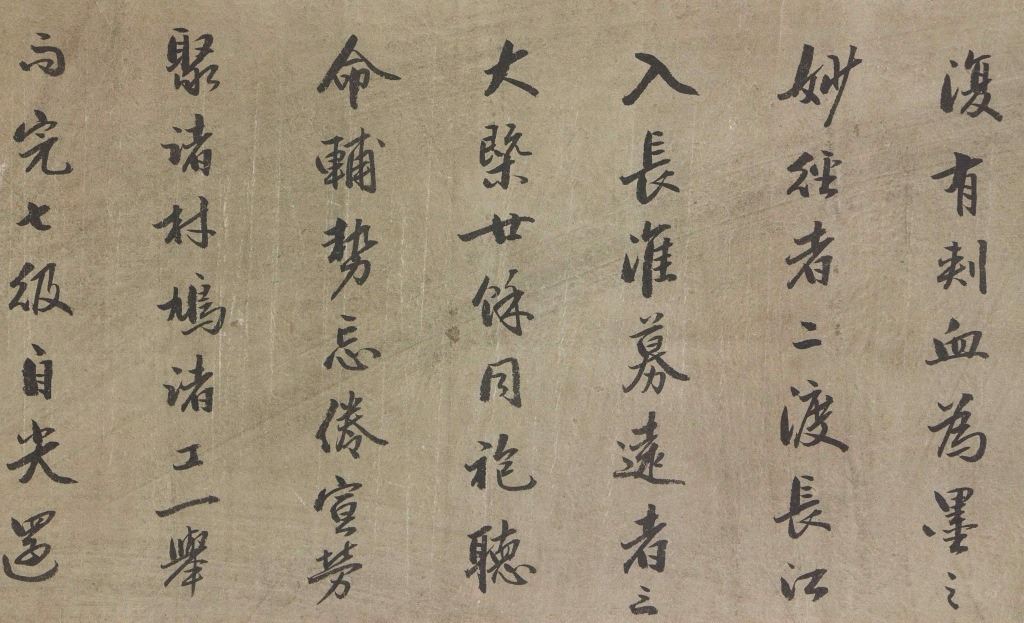 復有刺血為墨之
妙經者二渡長江
入長淮募遠者三
大槩廿餘同袍聽
命輔勢忘倦宣勞
聚諸材鳩諸工一舉
而完七級自尖還